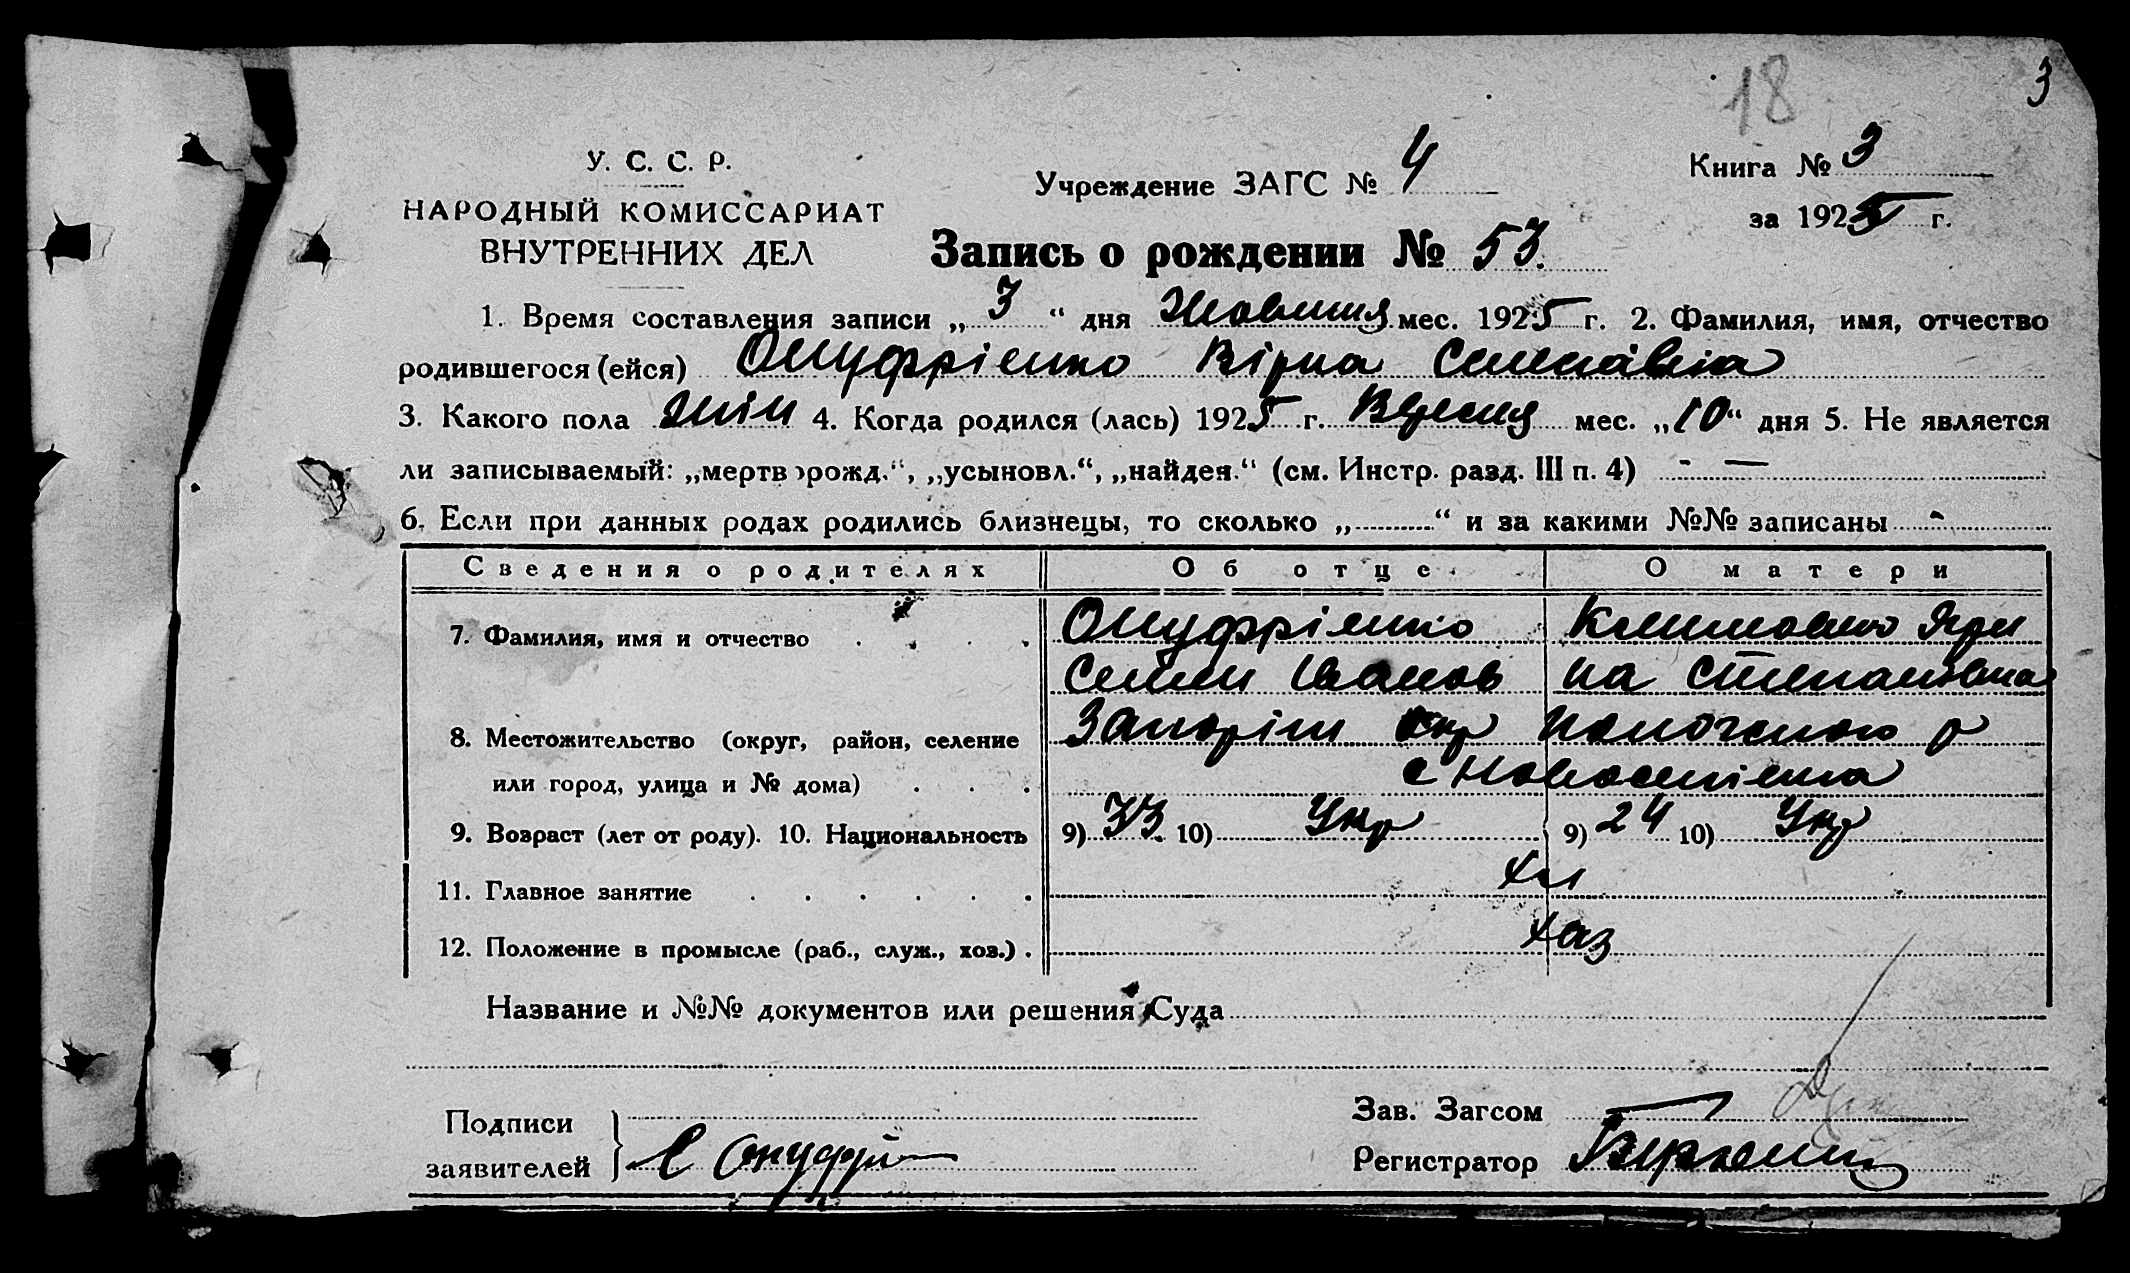 18
3
У. С. С. Р.
НАРОДНЫЙ КОМИССАРИАТ
ВНУТРЕННИХ ДЕЛ
Учреждение ЗАГС № 4
Книга № 3
за 1925 г.
Запись о рождении № 53.
1. Время составления записи „ 3 “ дня Жовтня мес. 1925 г. 2. Фамилия, имя, отчество
родившегося (ейся) Онуфрієнко Вірна Семенівна
3. Какого пола жін 4. Когда родился (лась) 1925 г. Вресня мес. „10“ дня 5. Не является
ли записываемый: „мертворожд.“, „усыновл.“, „найден.“ (см. Инстр. разд. III п. 4) - —
6. Если при данных родах родились близнецы, то сколько „..........“ и за какими №№ записаны -
Сведения о родителях Об отце О матери
7. Фамилия, имя и отчество Онуфрієнко Клименко Яри
Семен Іванов на Степановна
8. Местожительство (округ, район, селение Запоріж окр р
или город, улица и № дома) с
9. Возраст (лет от роду). 10. Национальность 9) 33 10) Укр 9) 24 10) Укр
11. Главное занятие Хл
12. Положение в промысле (раб., служ., хоз.) Хаз
Название и №№ документов или решения Суда
Подписи
заявителей С Онуфрі
Зав. Загсом
Регистратор